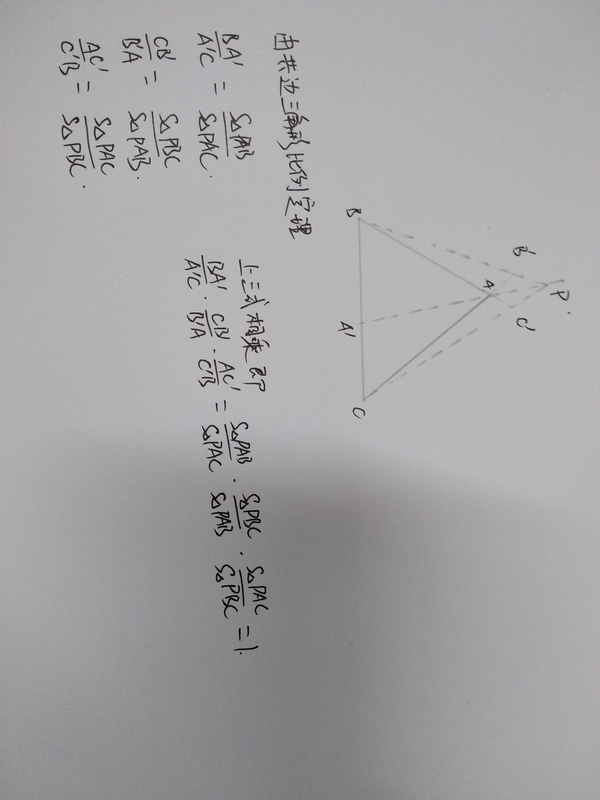 B
A'
C
A
B'
C'
P
由共边三角形比例定理
BA'/A'C = S△PAB/S△PAC.
CB'/B'A = S△PBC/S△PAB.
AC'/C'B = S△PAC/S△PBC.
上三式相乘即
BA'/A'C · CB'/B'A · AC'/C'B = S△PAB/S△PAC · S△PBC/S△PAB · S△PAC/S△PBC = 1.